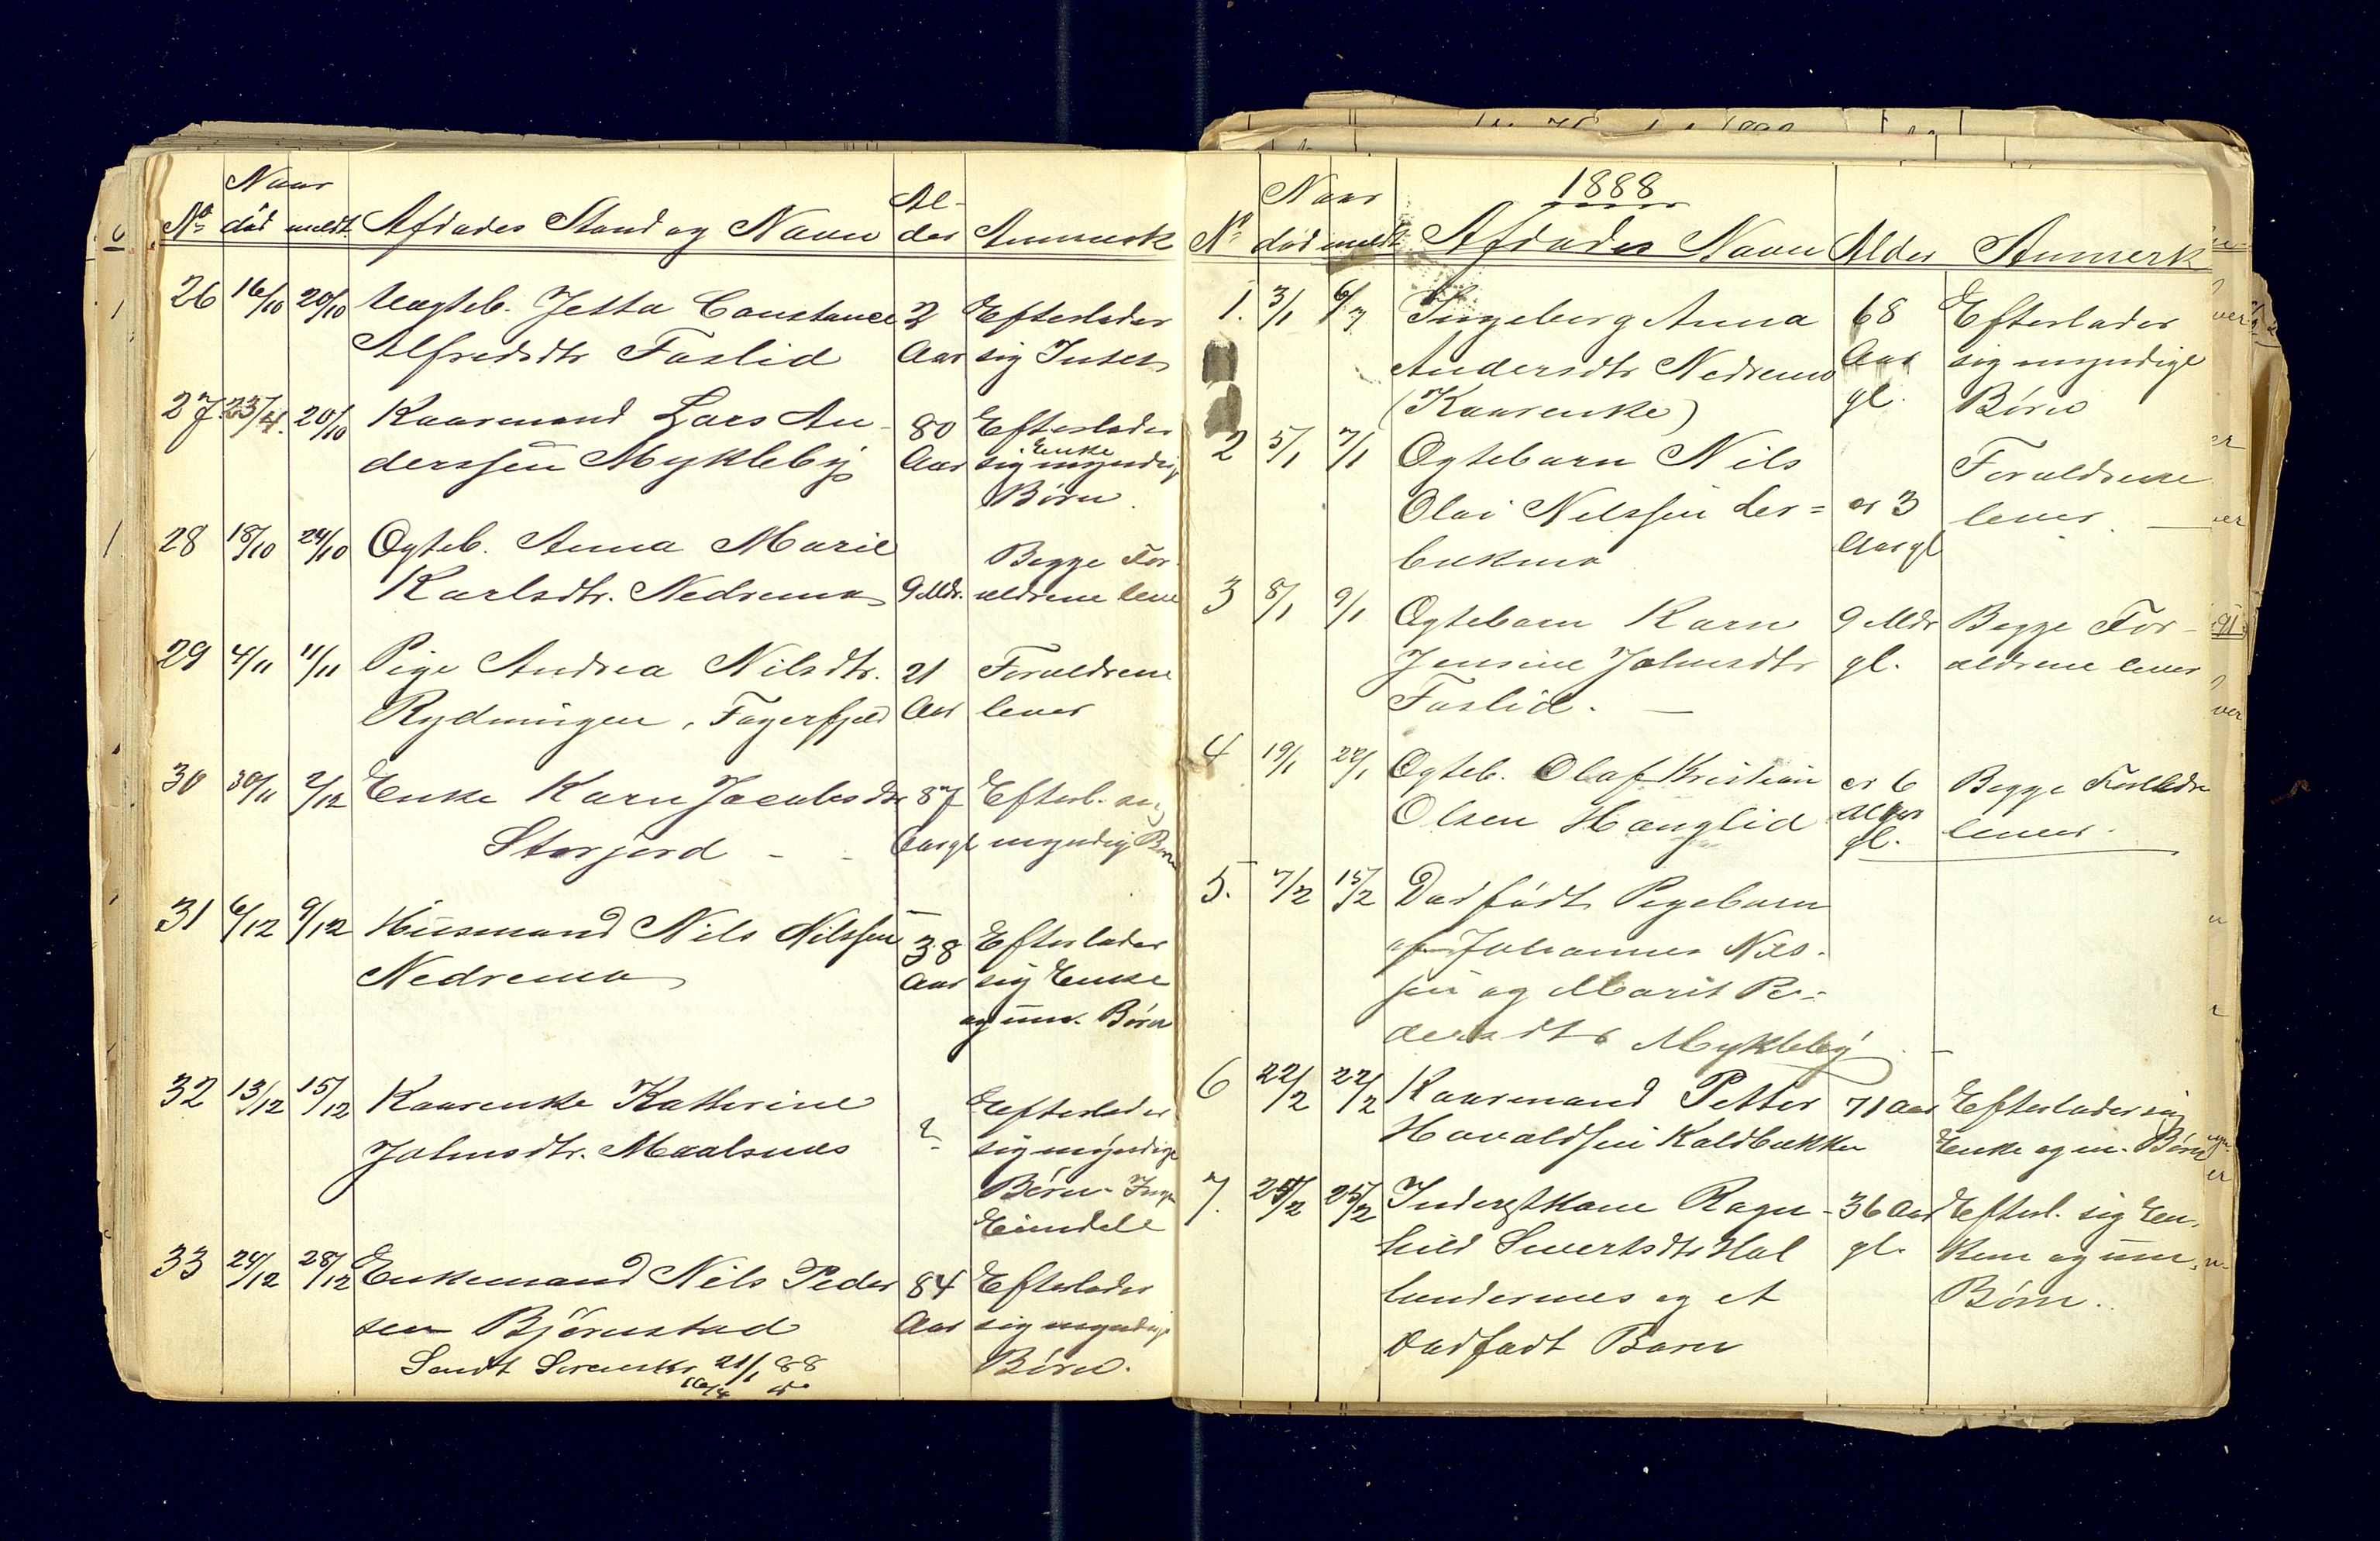 Naar
No død meldt. Afdødes Stand og Navn Al-
der Anmerk
26 16/10 20/10 Uægteb. Jetta Constance 2 Efterlader
Alfredsdtr Foslid Aar sig Intet
27. 23/4. 20/10 Kaarmand Lars An- 80 Efterlader
Enke
derssen Mykleby Aar sig myndig
Børn.
28 18/10 24/10 Ægteb. Anna Marie Begge For-
Karlsdtr. Nedremo 9 Mdr. ældrene leve
29 4/11 11/11 Pige Andrea Nilsdtr. 21 Forældrene
Rydningen, Fagerfjeld Aar lever
30 30/11 2/12 Enke Karn Jacobsdtr 87 Efterl. sig
Storjord Aargl myndig Børn
31 6/12 9/12 Husmand Nils Nilssen 38 Efterlader
Nedremo Aar sig Enke
og um. Børn
32 13/12 15/12 Kaarenke Katherine ? Efterlader
Johnsdtr. Maalsnes sig myndige
Børn. Ingen
Eiendele
33 24/12 28/12 Enkemand Nils Peder 84 Efterlader
sen Bjørnstad Aar sig myndige
Sendt Sorenskr. 21/1 88 Børn.
16/4
1888
Naar
No død meldt Afdødes Navn Alder Anmerk
1. 3/1 6/7 Ingeberg Anna 68 Efterlader
Andersdtr Nedremo Aar sig myndige
(Kaarenke) gl. Børn
2 5/1 7/1 Ægtebarn Nils Forældrene
Olai Nilssen Les= er 3 lever.
bukmo Aar gl
3 8/1 9/1 Ægtebarn Karn 9 Mdr Begge For-
Jensine Johnsdtr gl. ældrene lever
Foslid.
4 19/1 22/1 Ægteb. Olaf Kristian er 6 Begge Forældre
Olsen Hauglid Uger lever.
gl.
5. 7/2 15/2 Dødfødt Pigebarn
af Johannes Nils-
sen og Marit Pe-
dersdtr Mykleby
6 22/2 22/2 Kaarmand Petter 71 Aar Efterlader sig
Havaldsen Koldbækken Enke og m. Børn
7. 24/2 25/2 Inderstkone Ragn- 36 Aar Efterl. sig En-
hild Sivertsdtr Hol gl. kem og um.
lundernes og et Børn.
dødfødt Barn